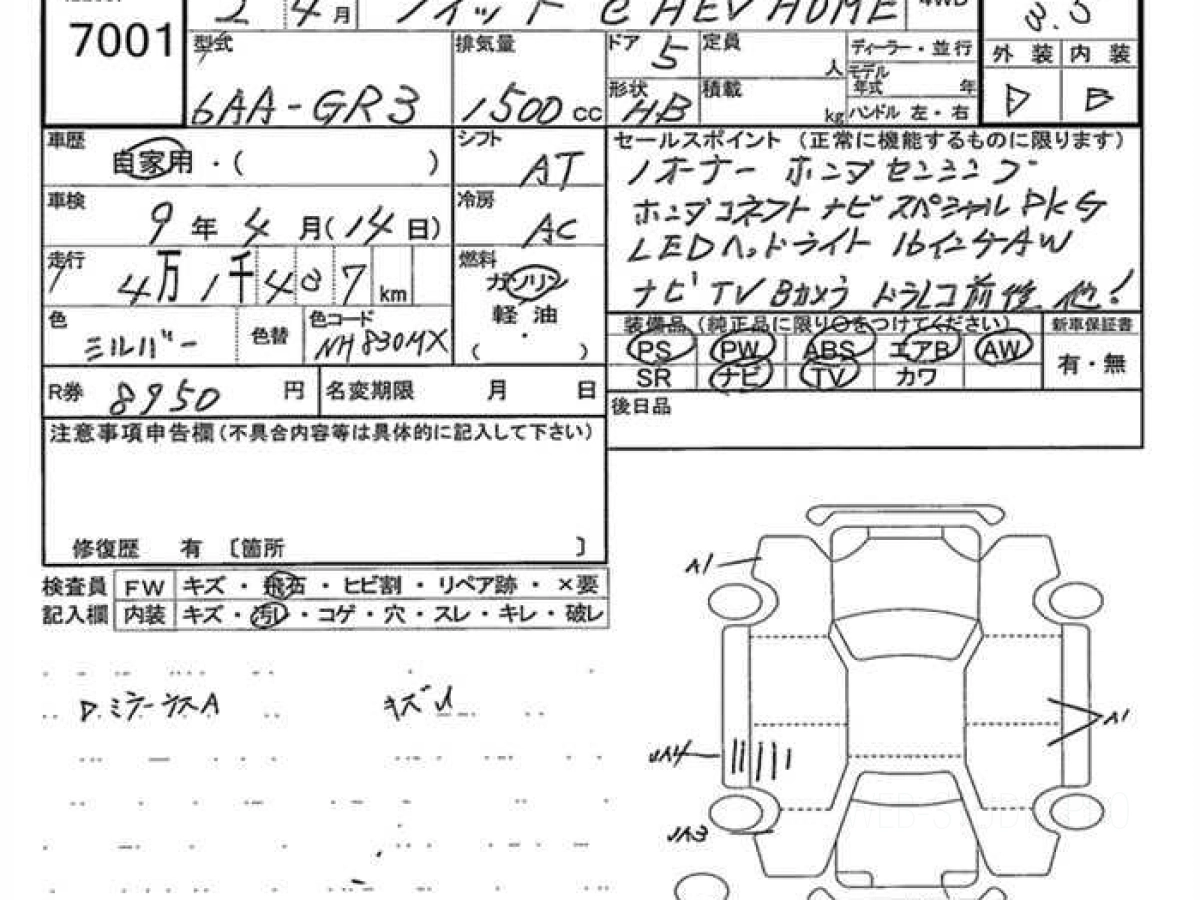 7001
2 4月 フィット e HEV HOME 4WD
3.5
型式 6AA-GR3
排気量 1500 cc
ドア 5
形状 HB
定員 人
積載 kg
ディーラー・並行
モデル年式 年
ハンドル 左・右
外装 内装
D B
車歴 自家用・( )
シフト AT
車検 9年4月(14日)
冷房 AC
走行 4万1千407km
燃料 ガソリン 軽油 ・ ( )
色 シルバー 色替 色コード NH830MX
セールスポイント (正常に機能するものに限ります)
1オーナー ホンダセンシング
ホンダコネクトナビスペシャルPKG
LEDヘッドライト 16インチAW
ナビ TV Bカメラ ドラレコ前後 他!
装備品 (純正品に限り○をつけてください) 新車保証書
PS PW ABS エアB AW
SR ナビ TV カワ
有・無
R券 8950 円 名変期限 月 日
後日品
注意事項申告欄(不具合内容等は具体的に記入して下さい)
修復歴 有 〔箇所 〕
検査員 FW キズ・飛石・ヒビ割・リペア跡・×要
記入欄 内装 キズ・汚レ・コゲ・穴・スレ・キレ・破レ
A1
A1
A3